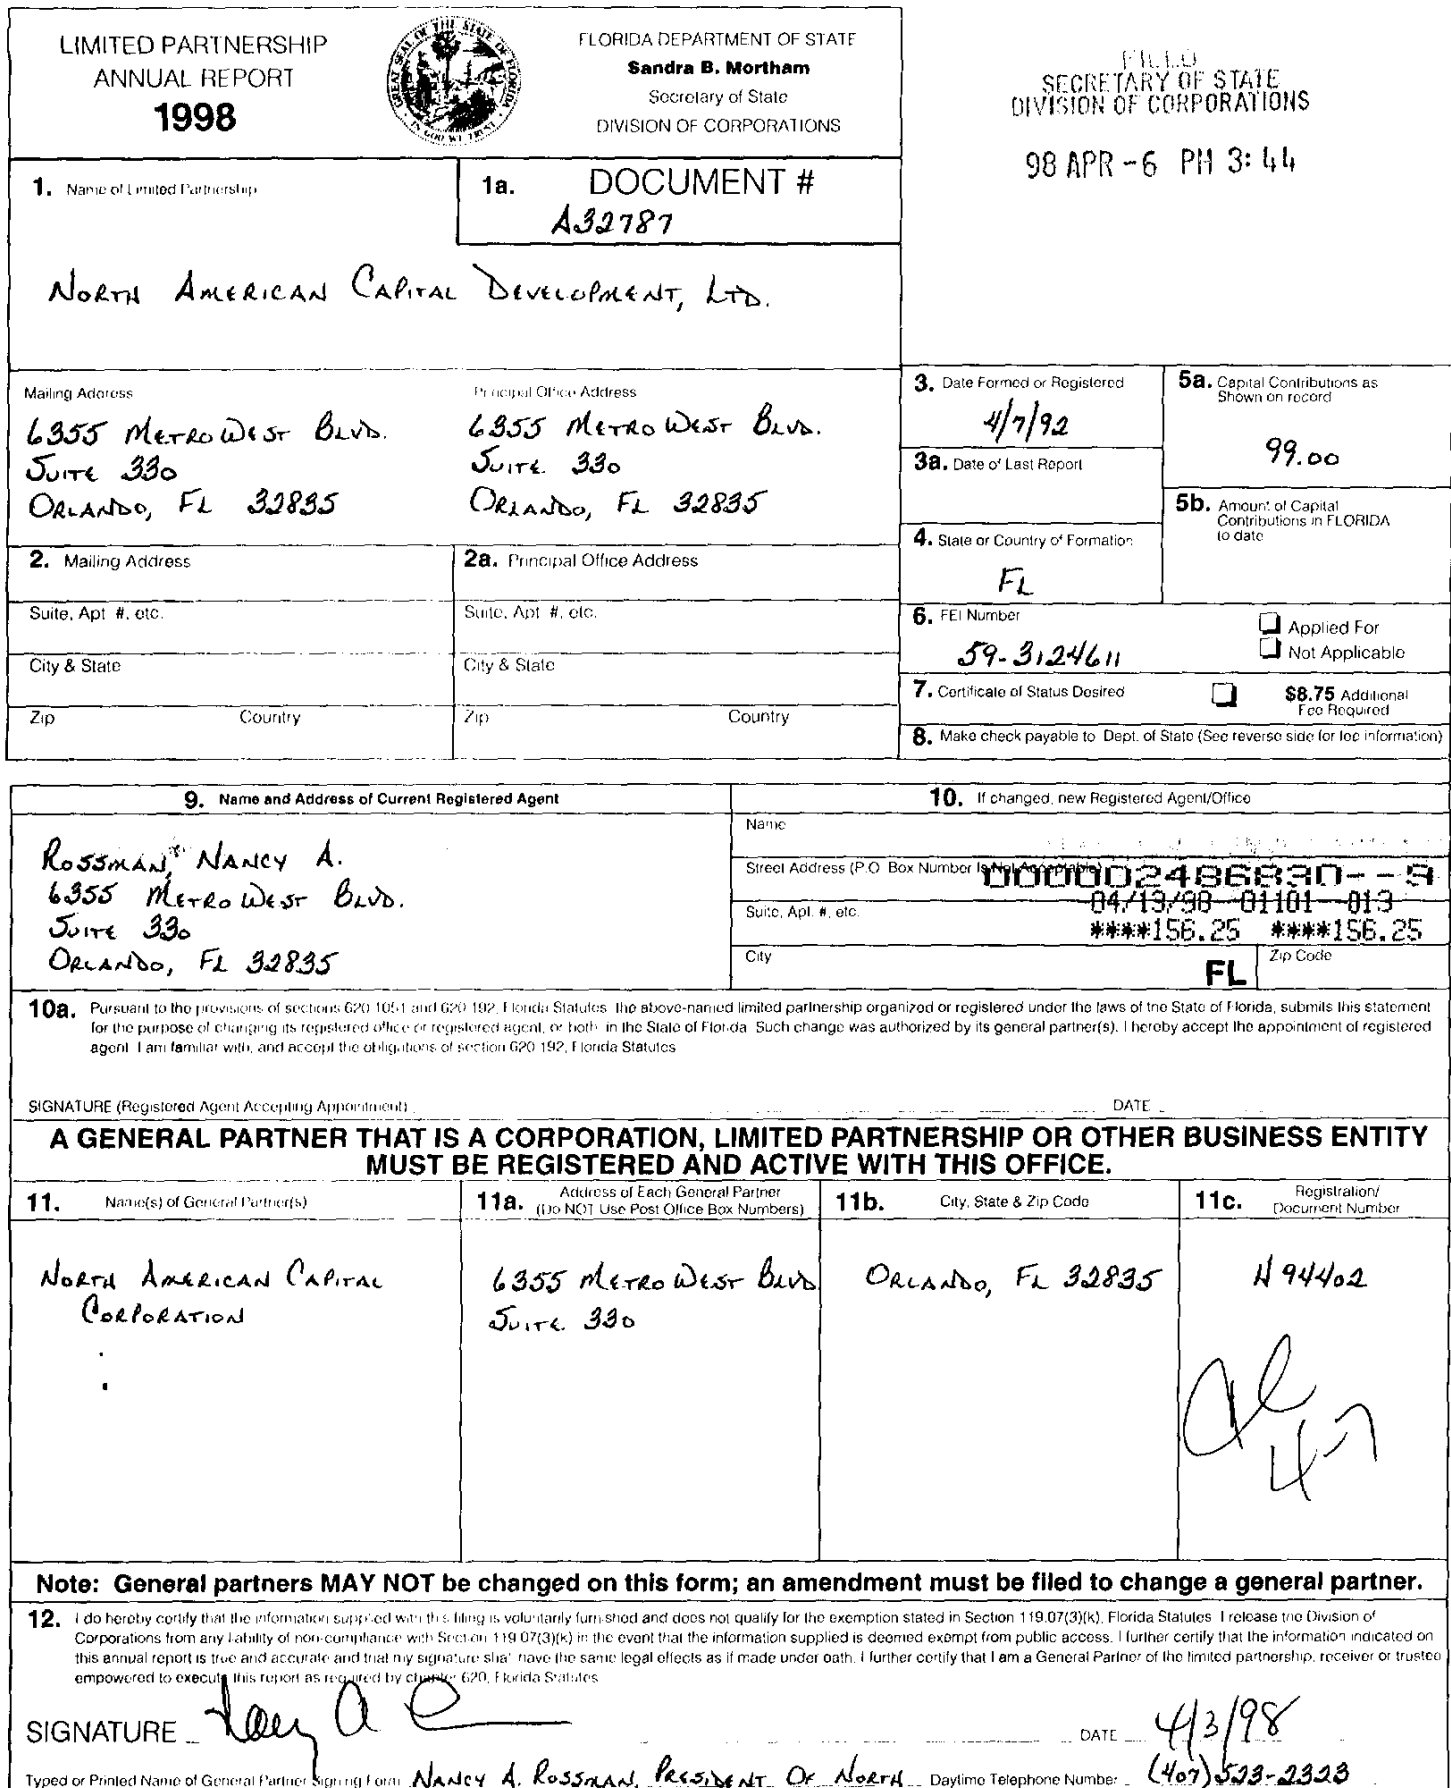 LIMITED PARTNERSHIP
ANNUAL REPORT
1998
GREAT SEAL OF THE STATE OF FLORIDA
IN GOD WE TRUST
FLORIDA DEPARTMENT OF STATE
Sandra B. Mortham
Secretary of State
DIVISION OF CORPORATIONS
FILED
SECRETARY OF STATE
DIVISION OF CORPORATIONS
98 APR -6 PM 3:44
1. Name of Limited Partnership
1a. DOCUMENT #
A32787
NORTH AMERICAN CAPITAL DEVELOPMENT, LTD.
Mailing Address
6355 METROWEST BLVD.
SUITE 330
ORLANDO, FL 32835
Principal Office Address
6355 METROWEST BLVD.
SUITE 330
ORLANDO, FL 32835
2. Mailing Address
2a. Principal Office Address
Suite, Apt #, etc.
Suite, Apt #, etc.
City & State
City & State
Zip Country
Zip Country
3. Date Formed or Registered
4/7/92
3a. Date of Last Report
4. State or Country of Formation
FL
5a. Capital Contributions as Shown on record
99.00
5b. Amount of Capital Contributions in FLORIDA to date
6. FEI Number
59-3124611
Applied For
Not Applicable
7. Certificate of Status Desired
$8.75 Additional Fee Required
8. Make check payable to Dept. of State (See reverse side for fee information)
9. Name and Address of Current Registered Agent
ROSSMAN, NANCY A.
6355 METROWEST BLVD.
SUITE 330
ORLANDO, FL 32835
10. If changed, new Registered Agent/Office
Name
Street Address (P.O. Box Number Is Not Acceptable)
000002486830--9
Suite, Apt. #, etc.
04/13/98--01101--013
****156.25 ****156.25
City
FL
Zip Code
10a. Pursuant to the provisions of sections 620.1051 and 620.192, Florida Statutes, the above-named limited partnership organized or registered under the laws of the State of Florida, submits this statement
for the purpose of changing its registered office or registered agent, or both, in the State of Florida. Such change was authorized by its general partner(s). I hereby accept the appointment of registered
agent. I am familiar with, and accept the obligations of section 620.192, Florida Statutes
SIGNATURE (Registered Agent Accepting Appointment)
DATE
A GENERAL PARTNER THAT IS A CORPORATION, LIMITED PARTNERSHIP OR OTHER BUSINESS ENTITY
MUST BE REGISTERED AND ACTIVE WITH THIS OFFICE.
11. Name(s) of General Partner(s)
11a. Address of Each General Partner (Do NOT Use Post Office Box Numbers)
11b. City, State & Zip Code
11c. Registration/ Document Number
NORTH AMERICAN CAPITAL
CORPORATION
6355 METROWEST BLVD
SUITE 330
ORLANDO, FL 32835
H94402
4-7
Note: General partners MAY NOT be changed on this form; an amendment must be filed to change a general partner.
12. I do hereby certify that the information supplied with this filing is voluntarily furnished and does not qualify for the exemption stated in Section 119.07(3)(k), Florida Statutes. I release the Division of
Corporations from any liability of non-compliance with Section 119.07(3)(k) in the event that the information supplied is deemed exempt from public access. I further certify that the information indicated on
this annual report is true and accurate and that my signature shall have the same legal effects as if made under oath. I further certify that I am a General Partner of the limited partnership, receiver or trustee
empowered to execute this report as required by chapter 620, Florida Statutes
SIGNATURE
DATE 4/3/98
Typed or Printed Name of General Partner Signing Form NANCY A. ROSSMAN, PRESIDENT OF NORTH
Daytime Telephone Number (407) 523-2323